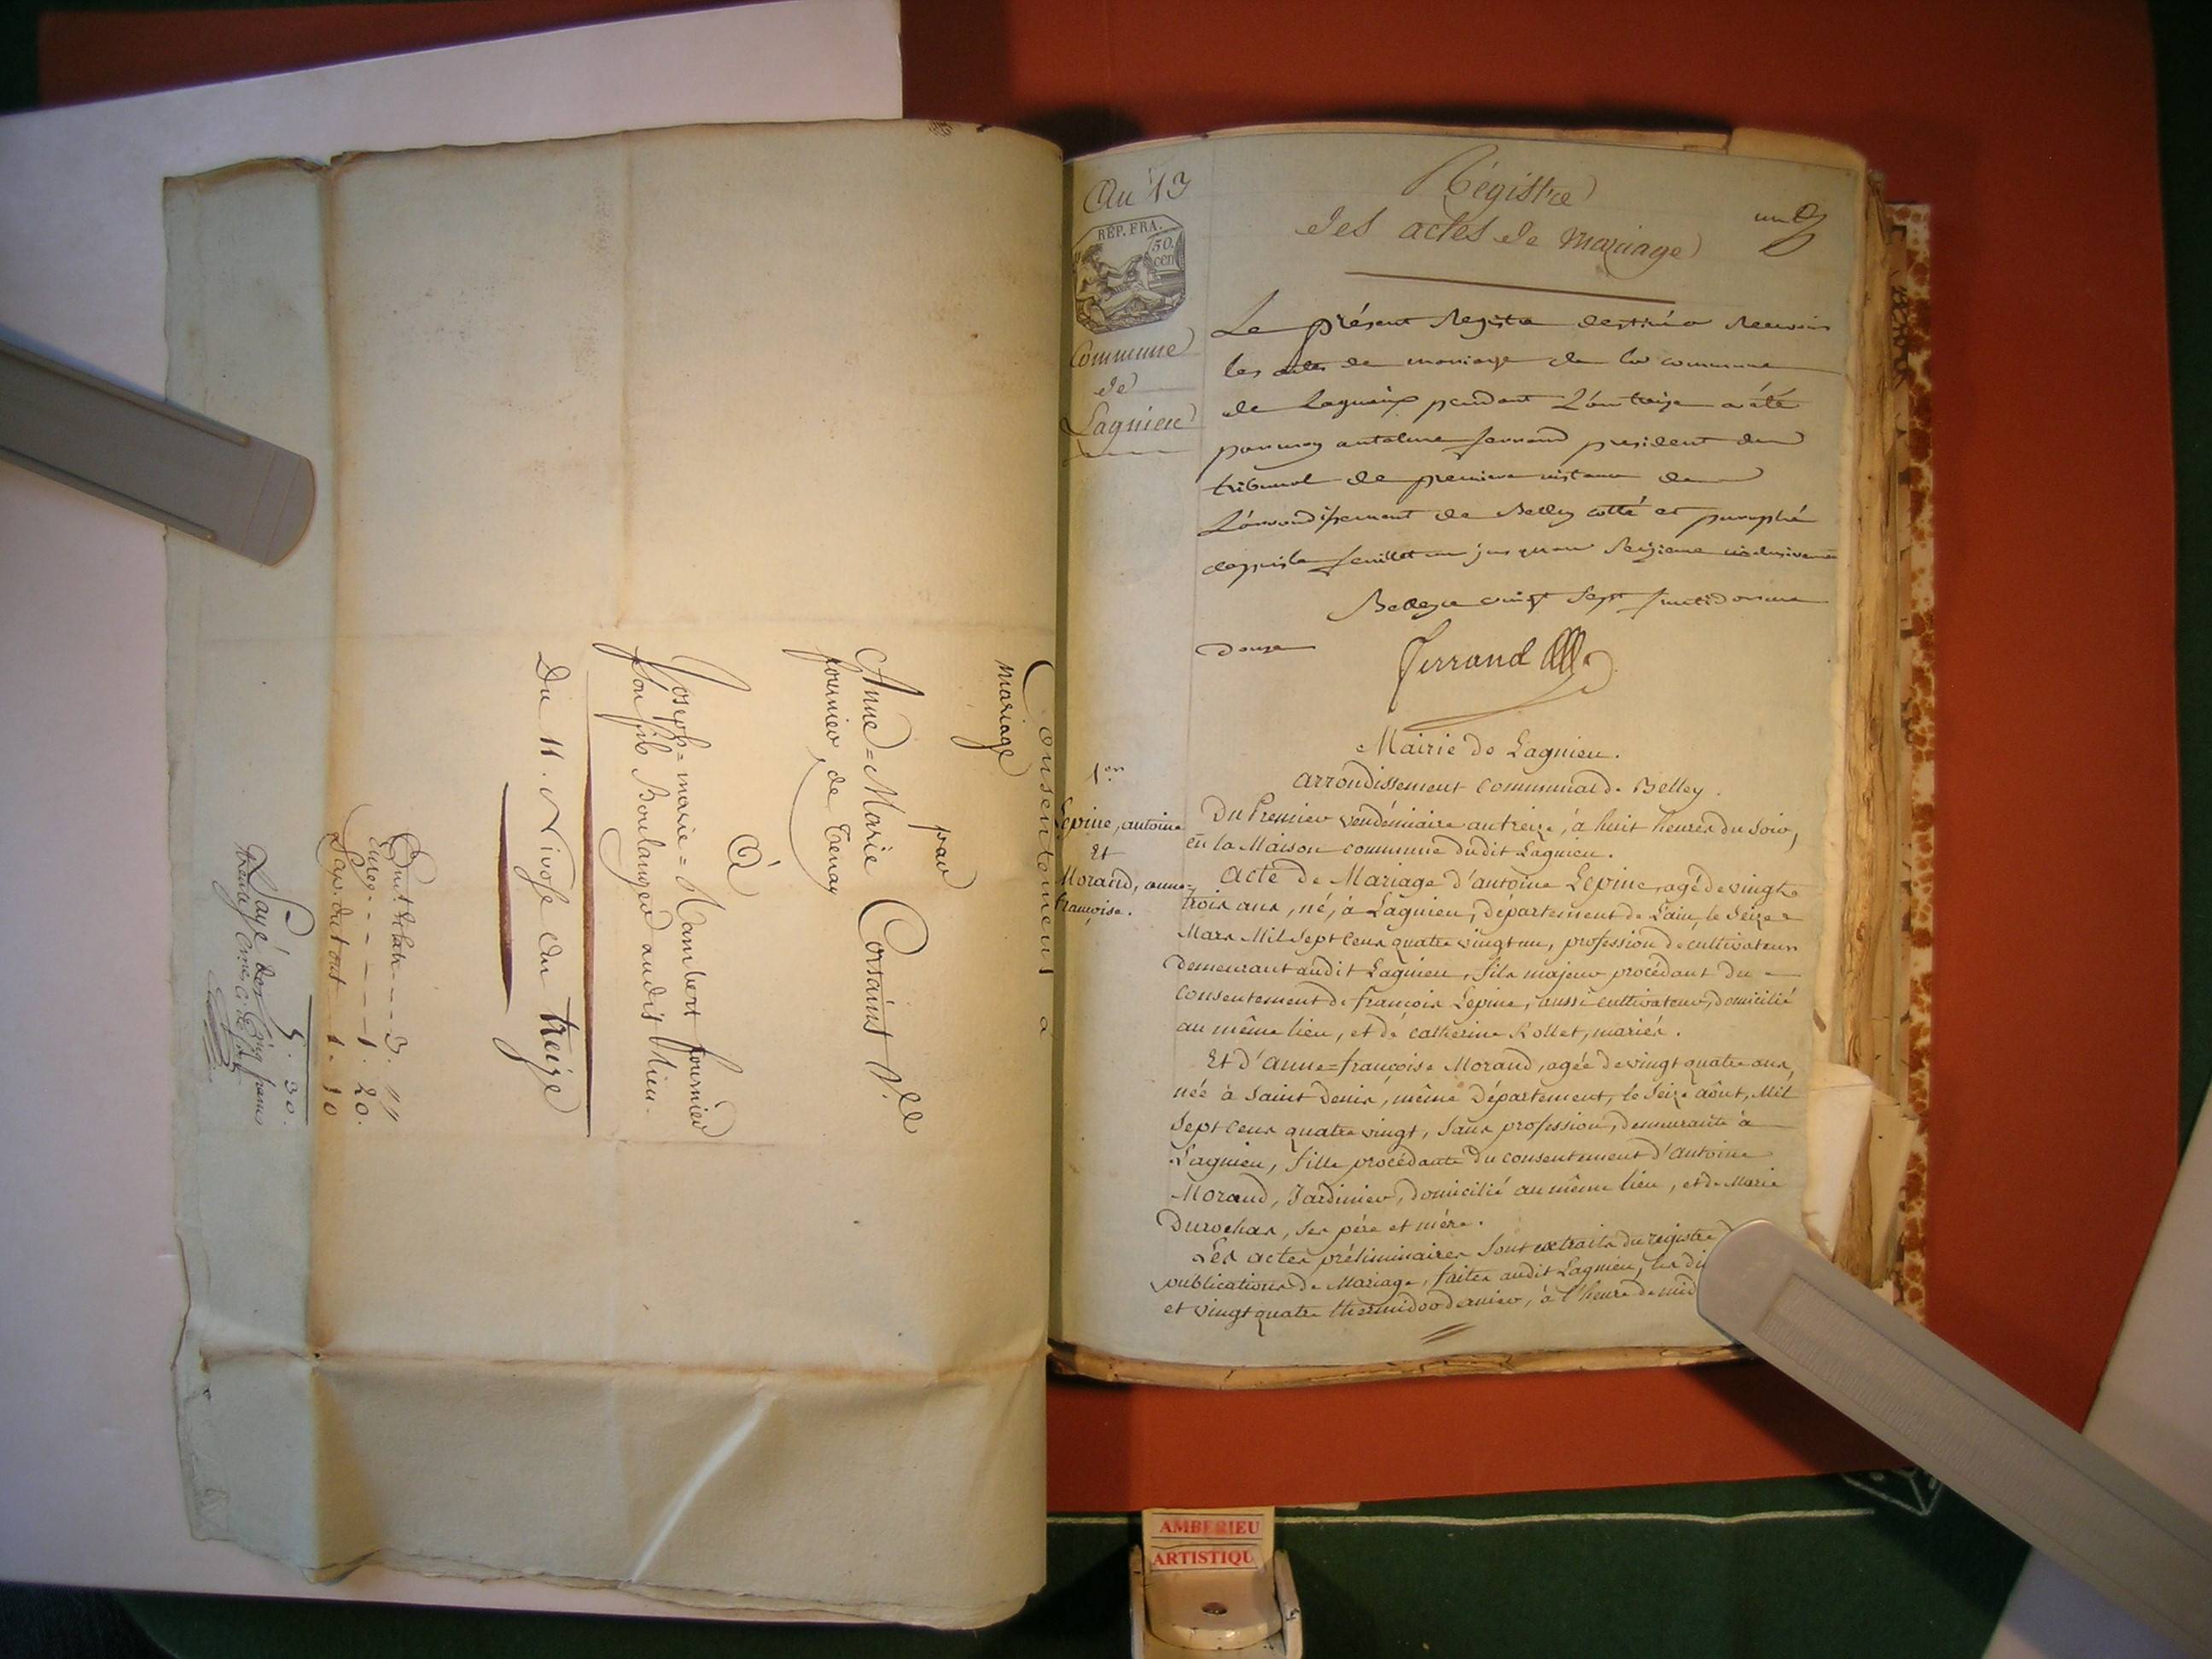 Consentement à
mariage
par
Anne=Marie Corsaint V.e
fournier, de Tenay
À
Joseph=marie=Rambert fournier
son fils Boulanger audit lieu.
Du 11. Nivose an treize
3. "
Enreg. - - - 1. 20.
Exp. du tout 1. 10
5. 30.
Payé cinq francs
trente Cmes
An 13
REP. FRA.
50.
cen
Commune
de
Lagnieu
Régistre
des actes de mariage
un
Le présent Registre destiné a recevoir
les actes de mariage de la commune
de Lagnieux pendant L'an treize a été
par moy anthelme ferrand president du
tribunal de premiere instance de
L'arrondissement de Belley cotté et paraphé
depuis le feuillet un jusqu'au seizieme inclusivement
Belley ce vingt sept fructidor an
Douze
Ferrand
Mairie de Lagnieu.
arrondissement communal de Belley.
1.er
Lepine, antoine
Et
Morand, anne=
françoise.
Du Premier vendémiaire an treize, à huit heures du soir,
en la Maison commune dudit Lagnieu.
acte de Mariage d'antoine Lepine, agé de vingt
trois ans, né, à Lagnieu, département de L'ain, le seize
Mars Mil sept cens quatre vingt un, profession de cultivateur
demeurant audit Lagnieu, fils majeur procédant du
consentement de françois Lepine, aussi cultivateur, domicilié
au même lieu, et de catherine Rollet, mariés.
Et d'anne=françoise Morand, agée de vingt quatre ans,
née à saint Denis, même département, le seize août, Mil
sept cens quatre vingt, sans profession, demeurante à
Lagnieu, fille procédante du consentement d'antoine
Morand, Jardinier, domicilié au même lieu, et de Marie
Durochas, ses père et mère.
Les actes préliminaires sont extraits du registre
publications de Mariage, faites audit Lagnieu, les
et vingt quatre thermidor dernier, à l'heure de
AMBERIEU
ARTISTIQU